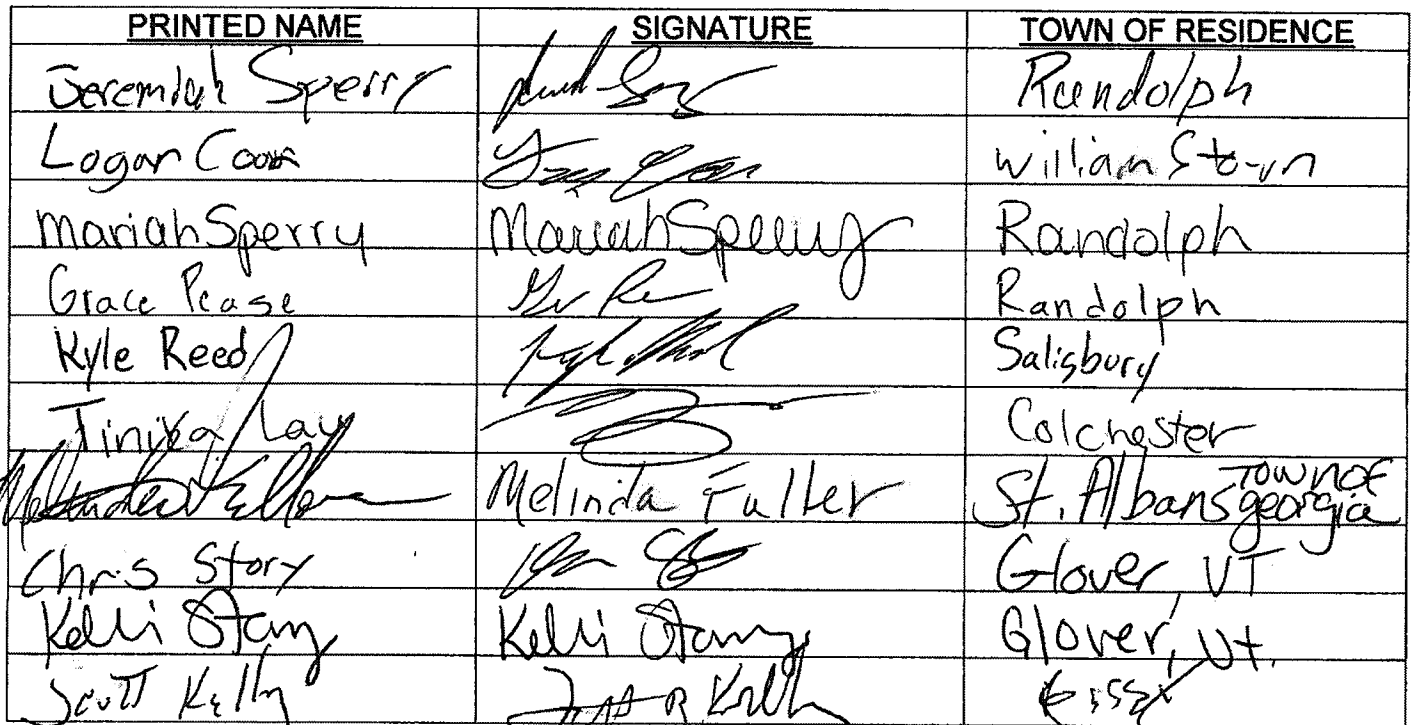 PRINTED NAME SIGNATURE TOWN OF RESIDENCE
Jeremiah Sperry Randolph
Logan Williamstown
Mariah Sperry Mariah Sperry Randolph
Grace Pease Randolph
Kyle Reed Salisbury
Colchester
Melinda Fuller St. Albans Town of georgia
Chris Story Glover VT
Kelli Story Kelli Story Glover, Vt.
Scott Kelly Essex